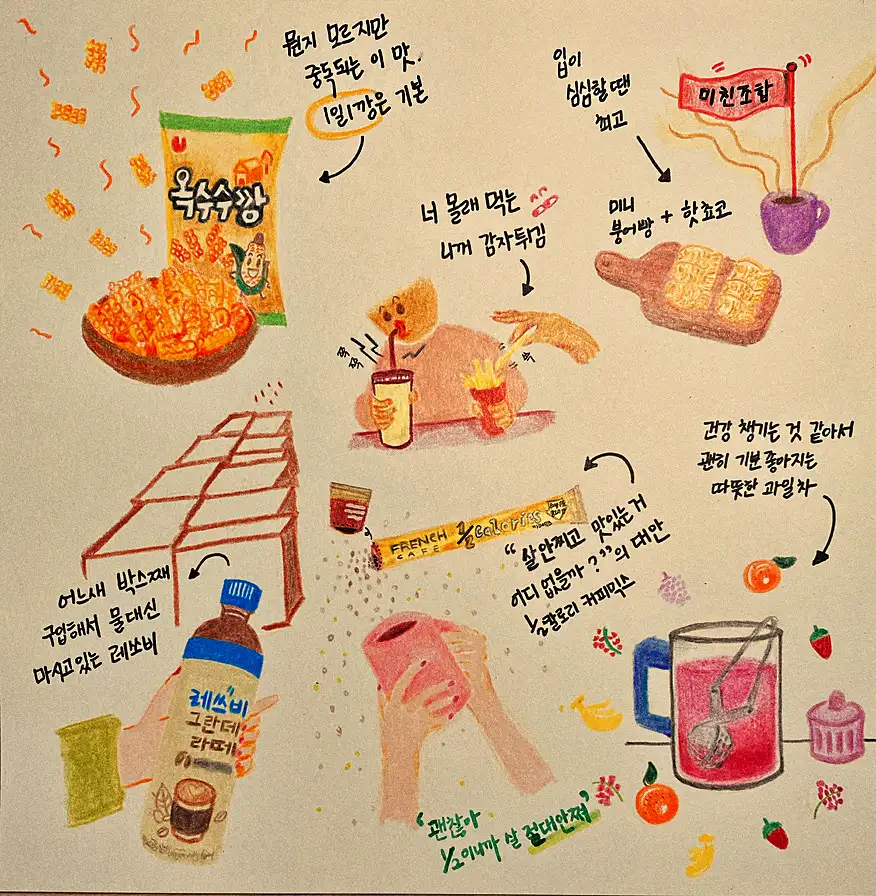 뭔지 모르지만
중독되는 이 맛.
1일1깡은 기본
옥수수깡
입이
심심할땐
최고
미친조합
미니
붕어빵 + 핫쵸코
너 몰래 먹는
나꺼 감자튀김
쪽
쪽
슥
건강 챙기는 것 같아서
괜히 기분좋아지는
따뜻한 과일차
FRENCH
CAFE
1/2 calories
"살안찌고 맛있는거
어디 없을까?"의 대안
1/2칼로리 커피믹스
어느새 박스째
구입해서 물대신
마시고있는 레쓰비
레쓰비
그란데
라떼
"괜찮아
1/2이니까 살 절대안쪄"